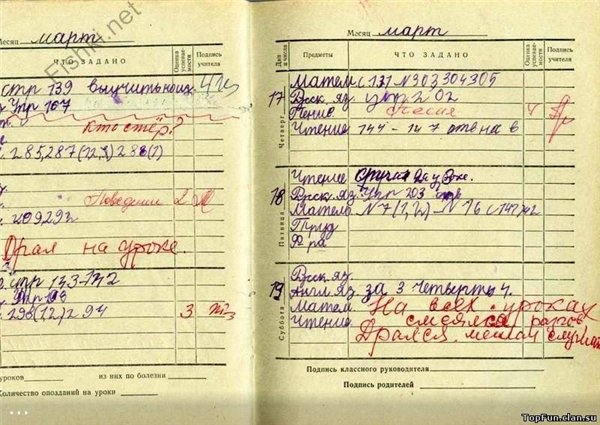 Месяц март
ЧТО ЗАДАНО
Оценка успевае-мости
Подпись учителя
стр 139 выучить наиз.
Упр 167
Кто стёр?
285,287(1,2,3) 288(1)
Поведение 2
209292
Драл на уроке.
стр 143-142
298(12) 294 3
уроков из них по болезни
Количество опозданий на уроки
Месяц март
Дни и числа
Предметы
ЧТО ЗАДАНО
Оценка успевае-мости
Подпись учителя
17
Четверг
Матем с 131 N303304305
Русск яз. упр 202
Пение Песня 4
Чтение 144-147 отв на в
18
Пятница
Чтение
Русск яз. Упр 203
Матем N7(1,2)-N16 с 147
Труд
Ф ра
19
Суббота
Русск яз.
Англ яз за 3 четверть 4.
Матем На всех уроках
Чтение смеялся
Дрался, мешал
Подпись классного руководителя
Подпись родителей
FishKi.net
TopFun.clan.su